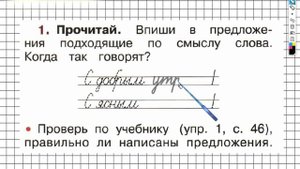 1. Прочитай. Впиши в предложе-
ния подходящие по смыслу слова.
Когда так говорят?
С добрым утр !
С ясным !
• Проверь по учебнику (упр. 1, с. 46),
правильно ли написаны предложения.